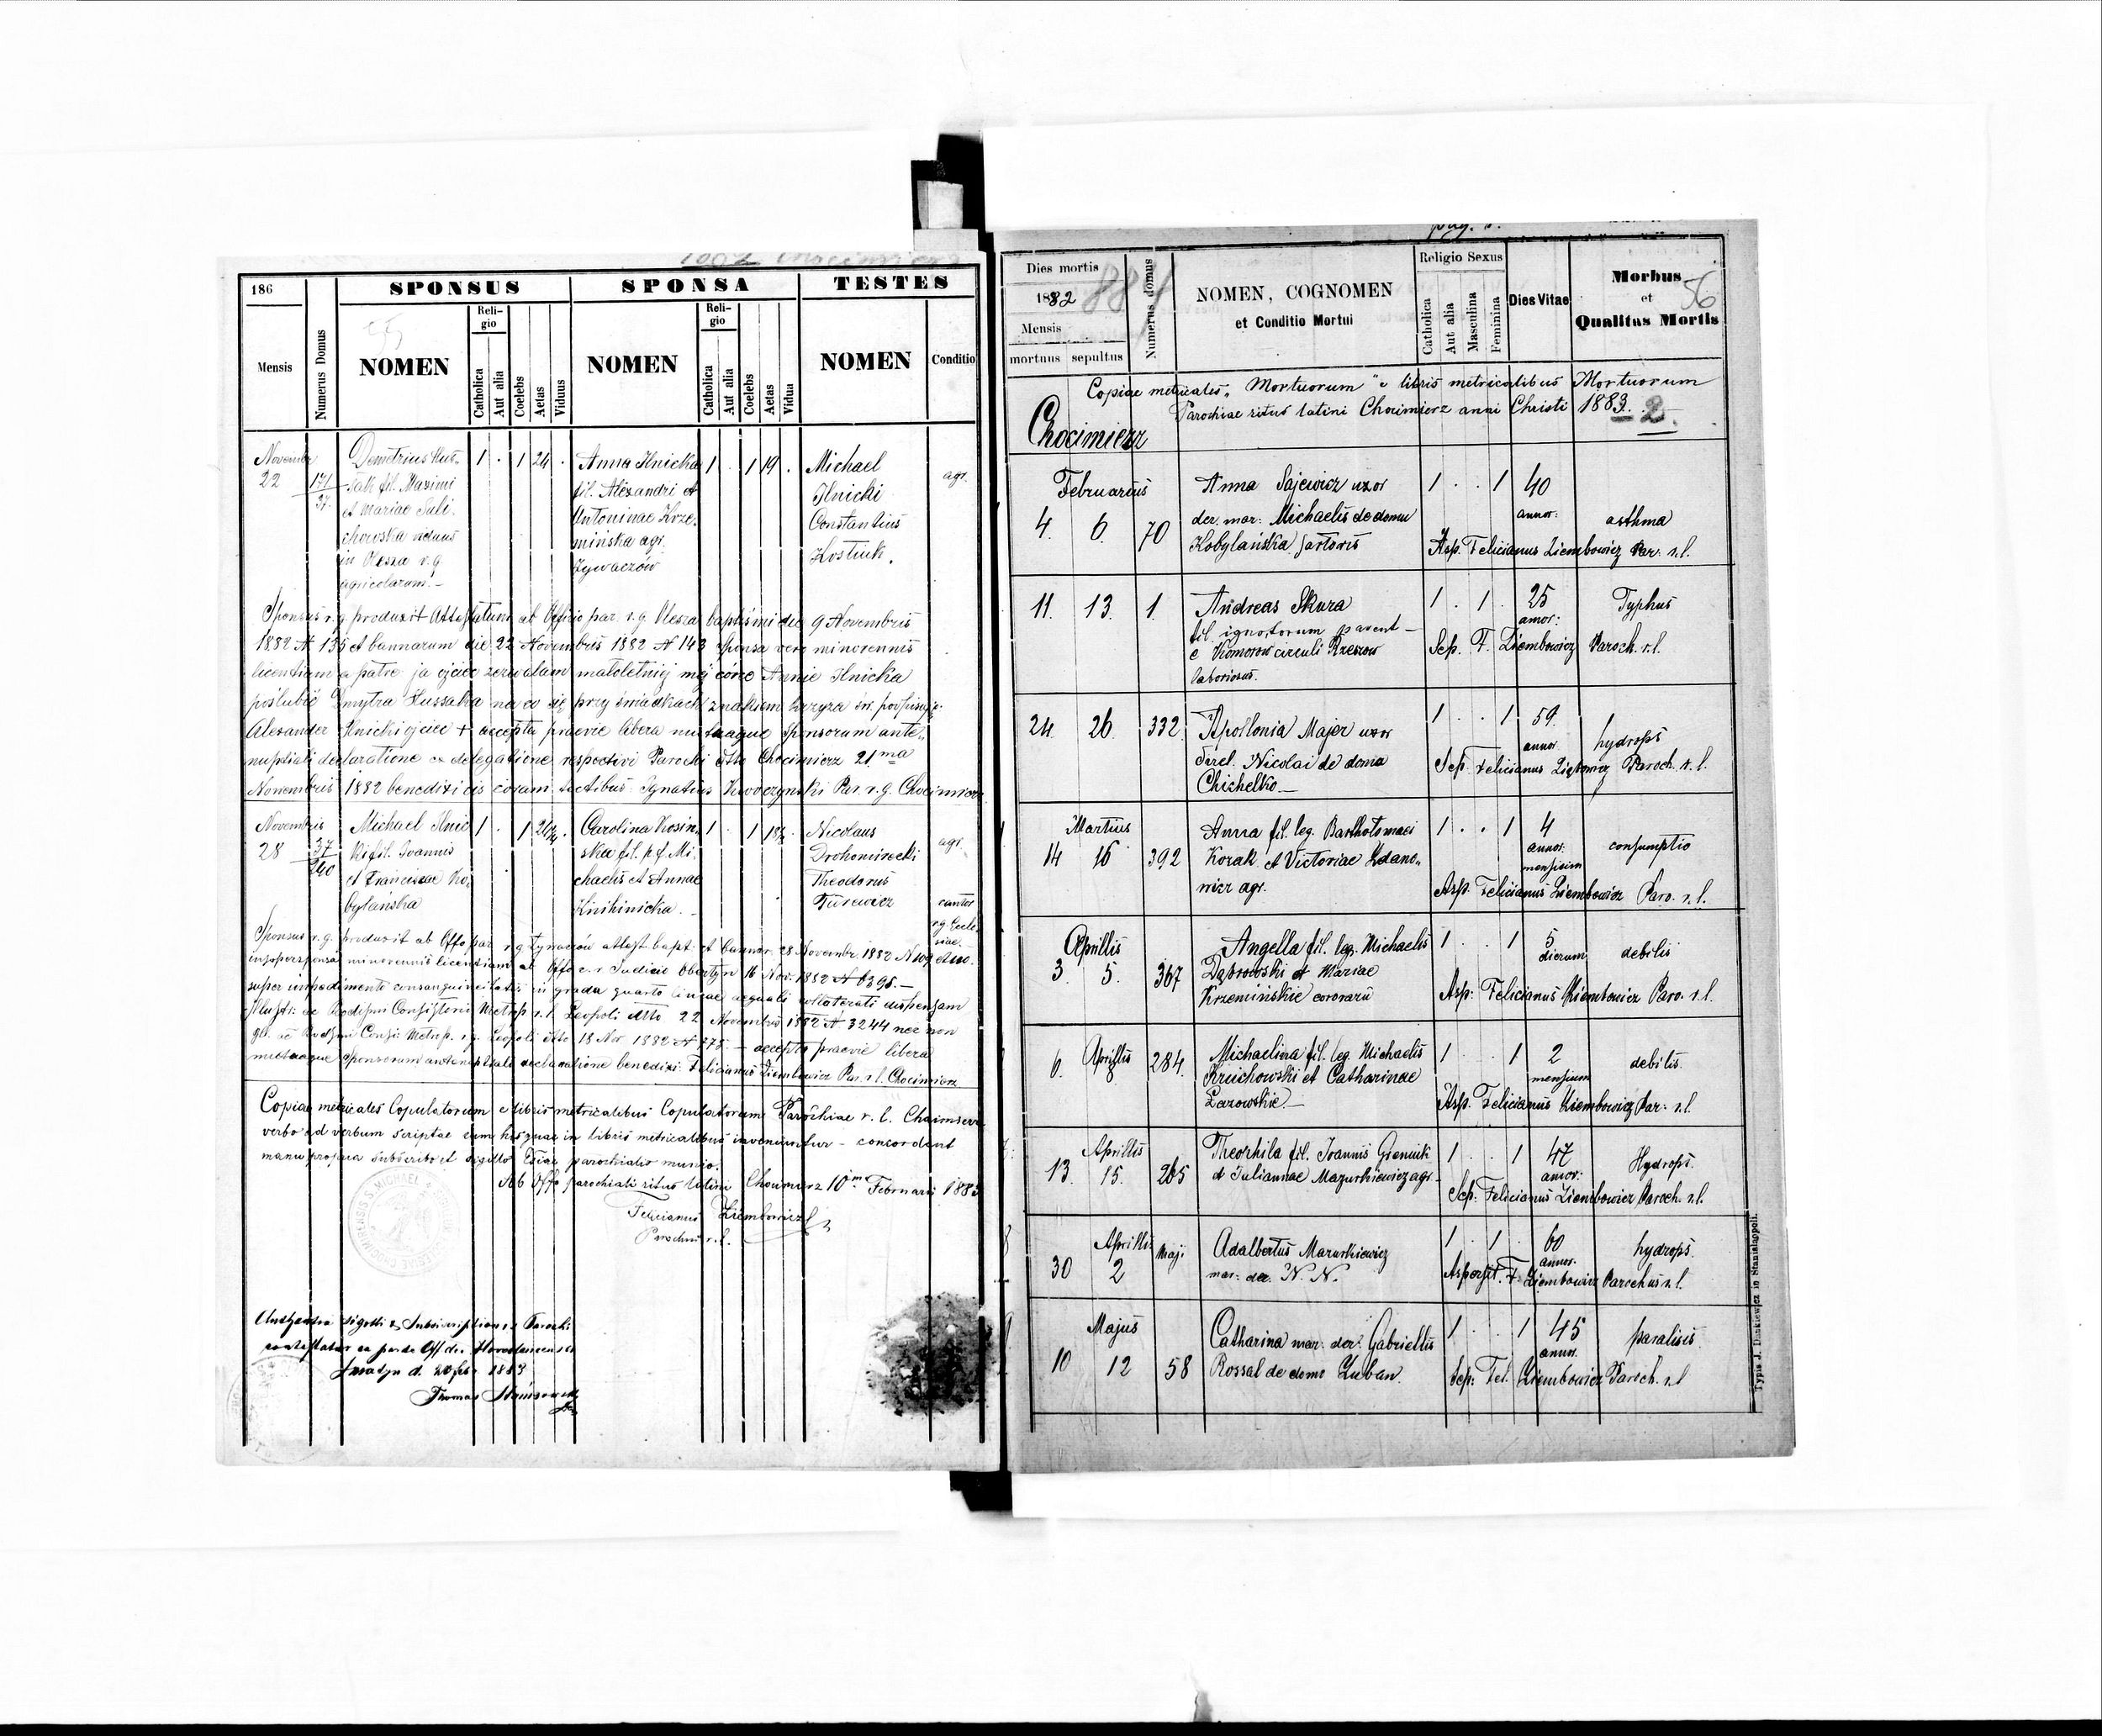 186
SPONSUS
SPONSA
TESTES
Mensis
Numerus Domus
NOMEN
Reli-
gio
Catholica
Aut alia
Coelebs
Aetas
Viduus
NOMEN
Reli-
gio
Catholica
Aut alia
Coelebs
Aetas
Vidua
NOMEN
Conditio
Novembr
22
171
37.
Demetrius Hus-
sak fil. Maximi
et Mariae Juli-
chowska viduus
in Olesza r.g.
agricolarum.-
1 . 1 24 .
Anna Ilnicka
fil. Alexandri et
Antoninae Krze-
mińska agr.
Żywaczów
1 . 1 19 .
Michael
Ilnicki
Constantius
Kostiuk.
agr.
Sponsus r.g. produxit Attestatum ab Officio par. r.g. Olesza baptismi die 9 Novembris
1882 N 135 et bannorum die 22 Novembris 1882 N 143 sponsa vero minorennis
licentiam a patre ja ojciec zezwalam małoletniej mej córce Annie Ilnicka
poślubić Dmytra Hussaka na co się przy świadkach znakiem krzyża św. podpisuję
Alexander Ilnicki ojciec + accepta praevie libera mutuaque sponsorum ante-
nuptiali declaratione ex delegatione respectivi Parochi dtto Chocimierz 21ma
Novembris 1882 benedixi eis coram testibus Ignatius Par. r.g. Chocimierz
Novembris
28
37
240
Michael Ilnic
ki fil. Joannis
et Franciscae Ko-
bylańska
1 . 1
Carolina Kosin-
ska fil. p.d. Mi-
chaelis et Annae
Knihinicka.
1 . 1
Nicolaus
Drohomirecki
Theodorus
Turewicz
agr.
cantor
r.g. Eccle-
siae.
Sponsus r.g. produxit ab Offo par r.g. Żywaczów attest. bapt. et bannor. 28 Novembr. 1882 N 109
insuper sponsa minorennis licentiam ab Offo c.r. Judicio Obertyn 16 Nov. 1882 N 6395.-
super impedimento consanguineitatis in gradu quarto lineae aequali collaterali dispensam
Consistorii Metrop r.l. Leopoli dtto 22 Novembris 1882 N 3244 nec non
Metrop. r.g. Leopoli dtto 18 Nov 1882 N 775 - accepta praevie libera
mutuaque sponsorum antenuptiali declaratione benedixi: Felicianus Ziembowicz Par. r.l. Chocimierz
Copiae metricales Copulatorum e libris metricalibus Copulatorum Parochiae r. l. Chocimierz
verbo ad verbum scriptae cum his quae in libris metricalibus inveniuntur - concordant
manu propria subscribo et sigillo Eccłae parochialis munio.
Ab Offo parochiali ritus latini Chocimierz 10ma Februarii 1883
Felicianus Ziembowicz
Parochus r.l.
sigilli & Subscriptionis Parochi
d. 20 1883
Thomas
pag. 1.
Dies mortis
1882
Mensis
mortuus sepultus
Numerus domus
NOMEN, COGNOMEN
et Conditio Mortui
Religio Sexus
Catholica
Aut alia
Masculina
Feminina
Dies Vitae
Morbus
et
Qualitas Mortis
56
Copiae metricales „Mortuorum" e libris metricalibus Mortuorum
Parochiae ritus latini Chocimierz anni Christi 1883.
2.
Chocimierz
Februarius
4. 6. 70
Anna Sajewicz uxor
der. mar: Michaelis de domu
Kobylańska sartoris
1 . . 1 40
annor:
asthma
Asp. Felicianus Ziembowicz Par: r.l.
11. 13. 1.
Andreas Skura
fil. ignotorum parent-
e Komorow circuli Rzeszow
laboriosus.
1 . 1 . 25
annor:
Typhus
Sep. F. Ziembowicz Paroch. r.l.
24. 26. 332.
Apollonia Majer uxor
derel. Nicolai de domo
Chichelko-
1 . . 1 59.
annor
hydrops
Sep. Felicianus Ziębowicz Paroch. r.l.
Martius
14 16 392
Anna fil. leg. Bartholomaei
Kozak et Victoriae Zdano-
wicz agr.
1 . . 1 4
annor:
mensium
consumptio
Asp. Felicianus Ziembowicz Paro. r.l.
Aprilis
3. 5. 367
Angella fil. leg. Michaelis
Dąbrowski et Mariae
Krzemińskie
1 . . 1 5
dierum
debilis
Asp: Felicianus Ziembowicz Paro. r.l.
Aprillis
6. 8 284.
Michaelina fil. leg. Michaelis
Kruchowski et Catharinae
Lazowskie-
1 . . 1 2
mensium
debilis.
Asp. Felicianus Ziembowicz Par: r.l.
Aprillis
13. 15. 265
Theophila fil. Joannis
et Juliannae Mazurkiewicz agr.
1 . . 1 47
annor:
Hydrops.
Sep: Felicianus Ziembowicz Paroch. r.l.
Aprillis Maji
30 2
Adalbertus Mazurkiewicz
mar: der. N. N.
1 . 1 . 60
annor.
hydrops.
Aspersit. F. Ziembowicz Parochus r.l.
Majus
10 12 58
Catharina mar: der: Gabriellis
Rossal de domo Luban.
1 . . 1 45
annor.
paralisis.
Sep: Fel. Ziembowicz Paroch. r.l
Typis J. Dankiewicz in Stanislappoli.